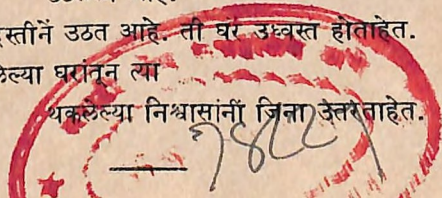 स्तीनें उठत आहे. ती घरं उध्वस्त होताहेत.
लेल्या घरांतून त्या
थकलेल्या निश्वासांनीं जिना उतरताहेत.